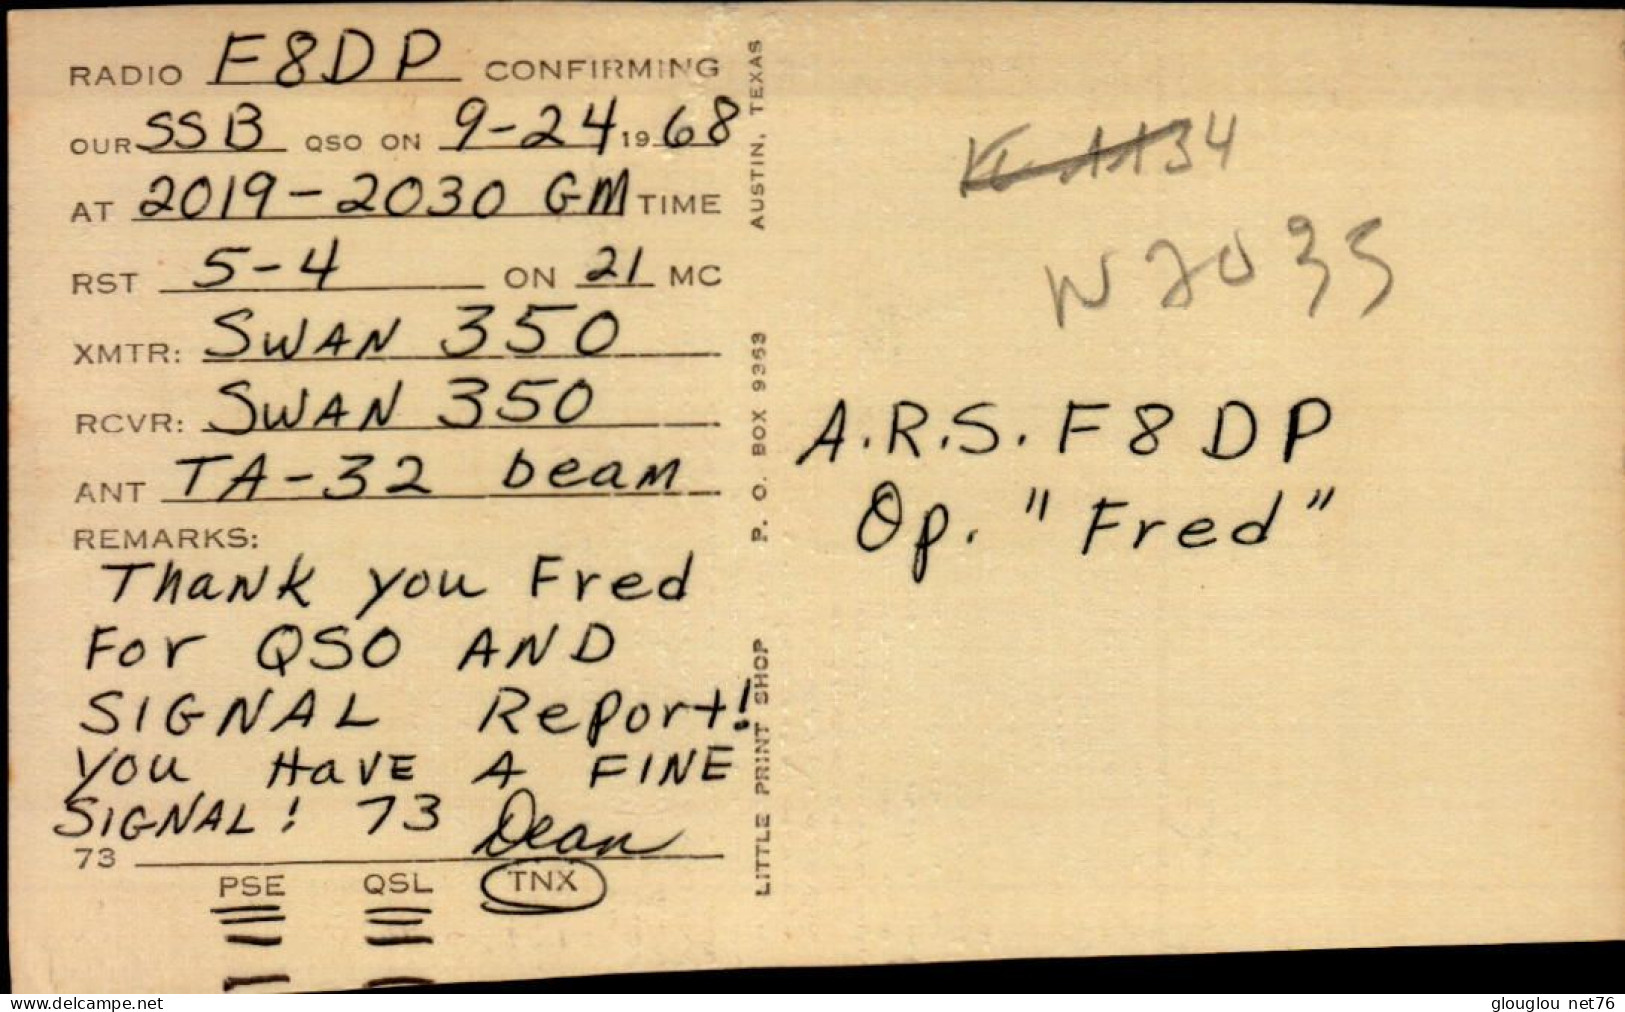 RADIO F8DP CONFIRMING
OUR SSB QSO ON 9-24 1968
AT 2019-2030 GM TIME
RST 5-4 ON 21 MC
XMTR: SWAN 350
RCVR: SWAN 350
ANT TA-32 beam
REMARKS:
Thank you Fred
For QSO AND
SIGNAL Report!
You HaVE A FINE
SIGNAL! 73 Dean
73
PSE QSL TNX
LITTLE PRINT SHOP P. O. BOX 9363 AUSTIN, TEXAS
34
A.R.S. F8DP
Op. "Fred"
www.delcampe.net
glouglou net76